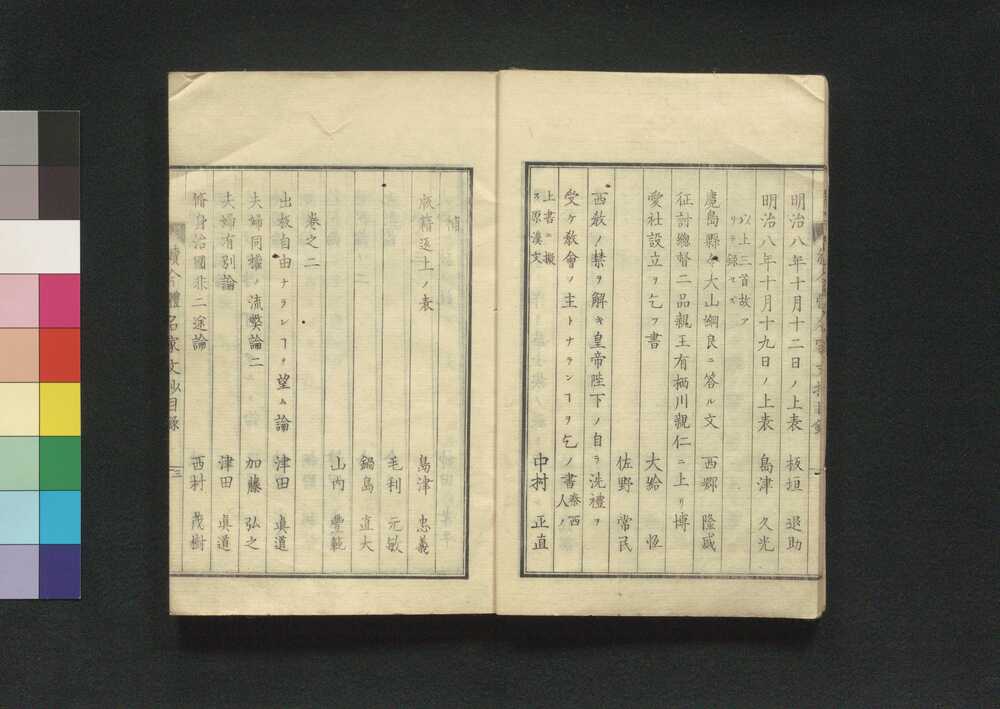 明治八年十月十二日ノ上表　板垣　退助
明治八年十月十九日ノ上表　島津　久光
以上三首故アリテ録セズ
鹿島縣令大山綱良ニ答ル文　西郷　隆盛
征討總督二品親王有栖川親仁ニ上リ博
愛社設立ヲ乞フ書　大給　恒
佐野　常民
西教ノ禁ヲ解キ皇帝陛下ノ自ラ洗禮ヲ
受ケ教會ノ主トナランヿヲ乞ノ書
泰西人ノ
上書ニ擬ス原漢文　中村　正直
補
版籍返上ノ表　島津　忠義
毛利　元敏
鍋島　直大
山內　豐範
卷之二
出板自由ナランヿヲ望ム論　津田　眞道
夫婦同權ノ流弊論二　加藤　弘之
夫婦有別論　津田　眞道
脩身治國非二途論　西村　茂樹
續今體名家文抄目錄
三